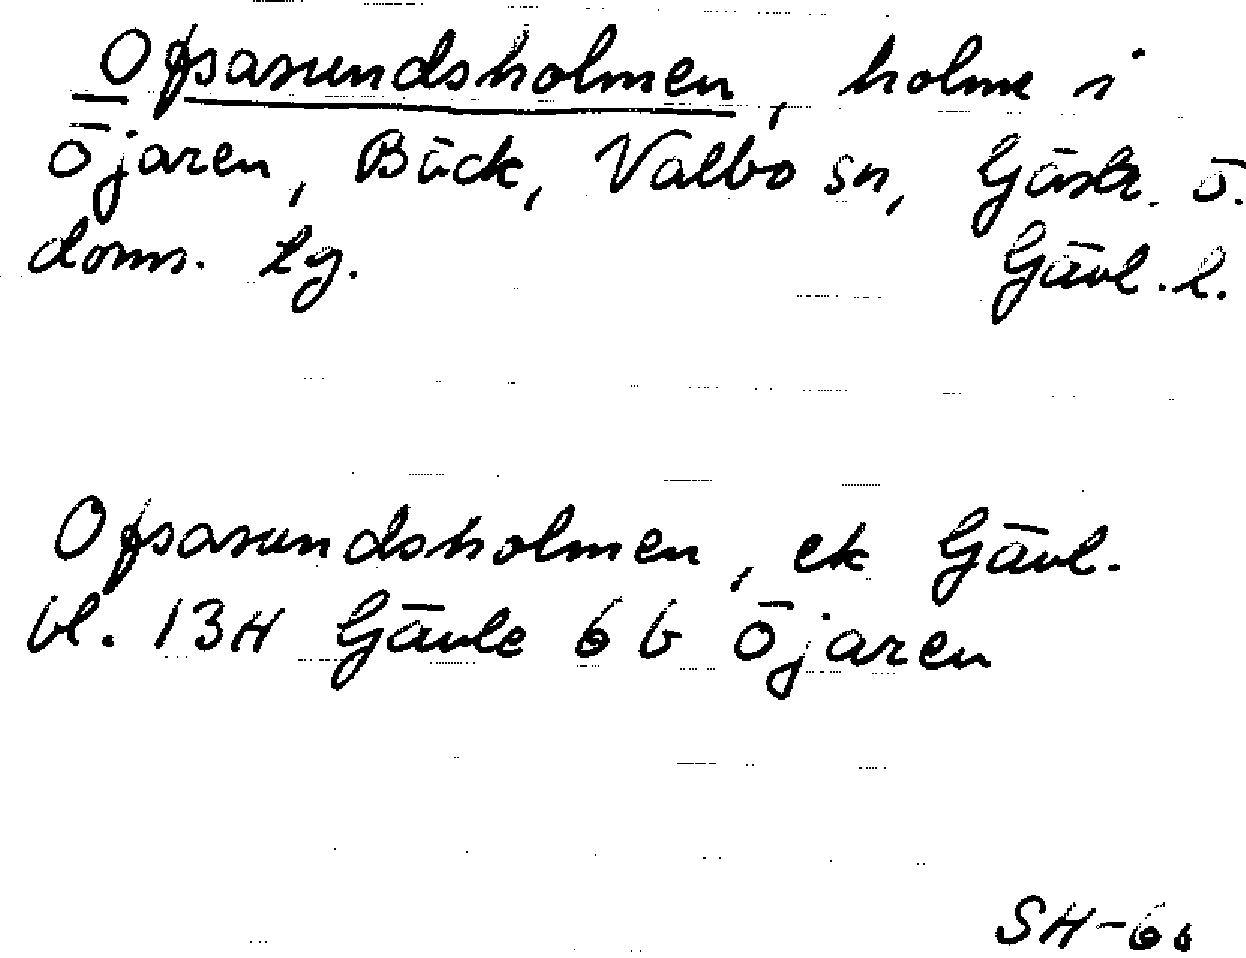 Opsarundsholmen, holme i
Öjaren, Bäck, Valbo sn, Gästr. ö.
doms. tg. Gävl. l.
Opsarundsholmen, ek Gävl.
bl. 13H Gävle 6 b Öjaren
SH-66